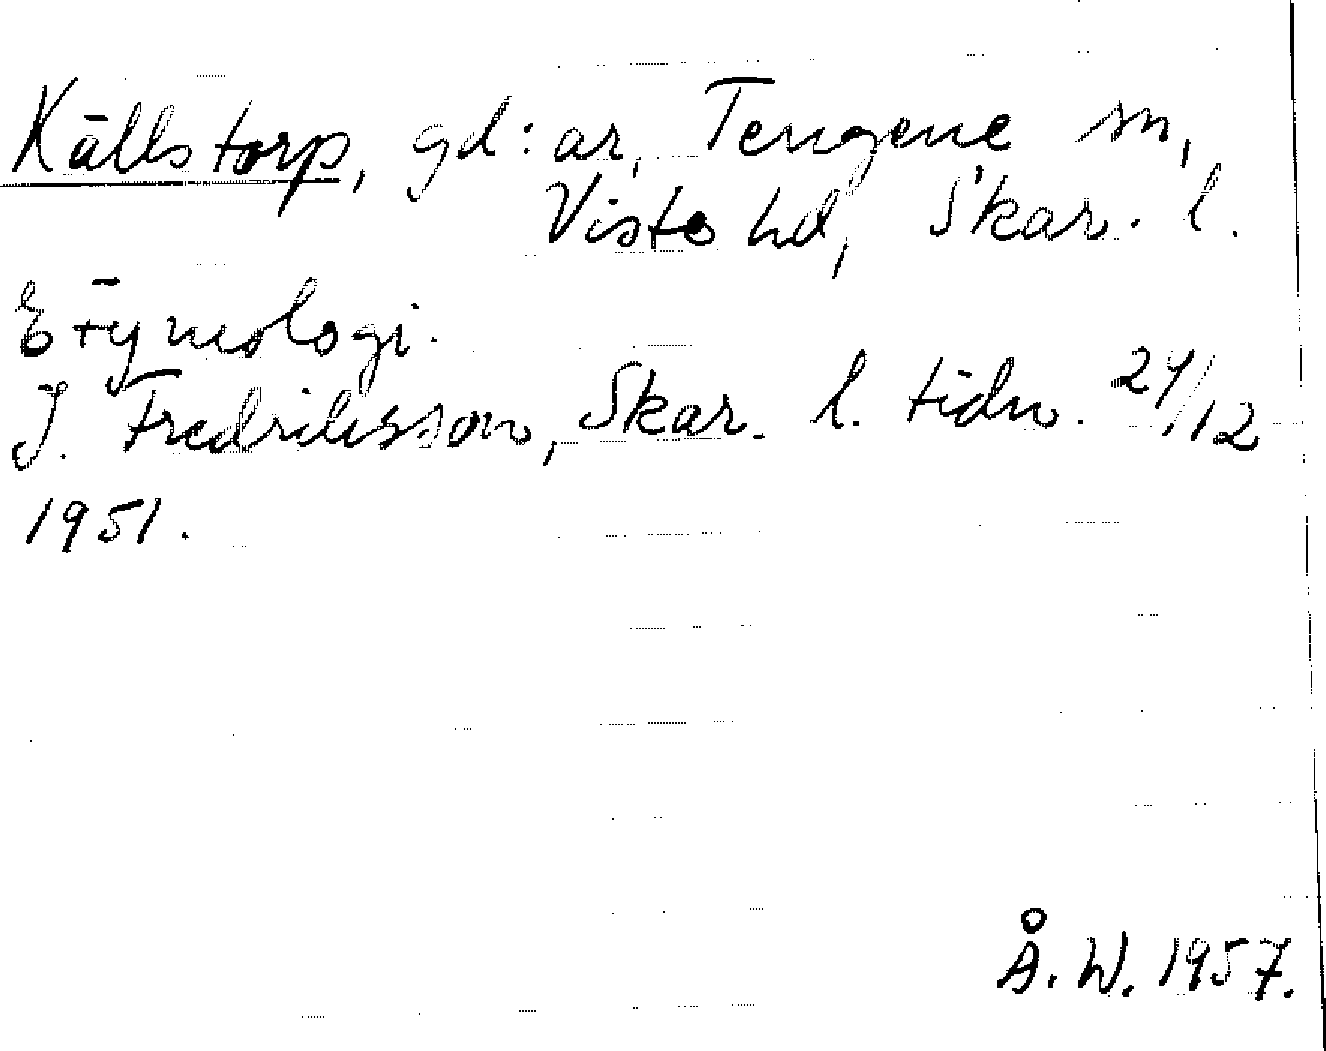 Källstorp, gd:ar, Tengene sn,
Viste hd, Skar. l.
Etymologi.
J. Fredriksson, Skar. l. tidn. 24/12
1951.
Å. W. 1957.